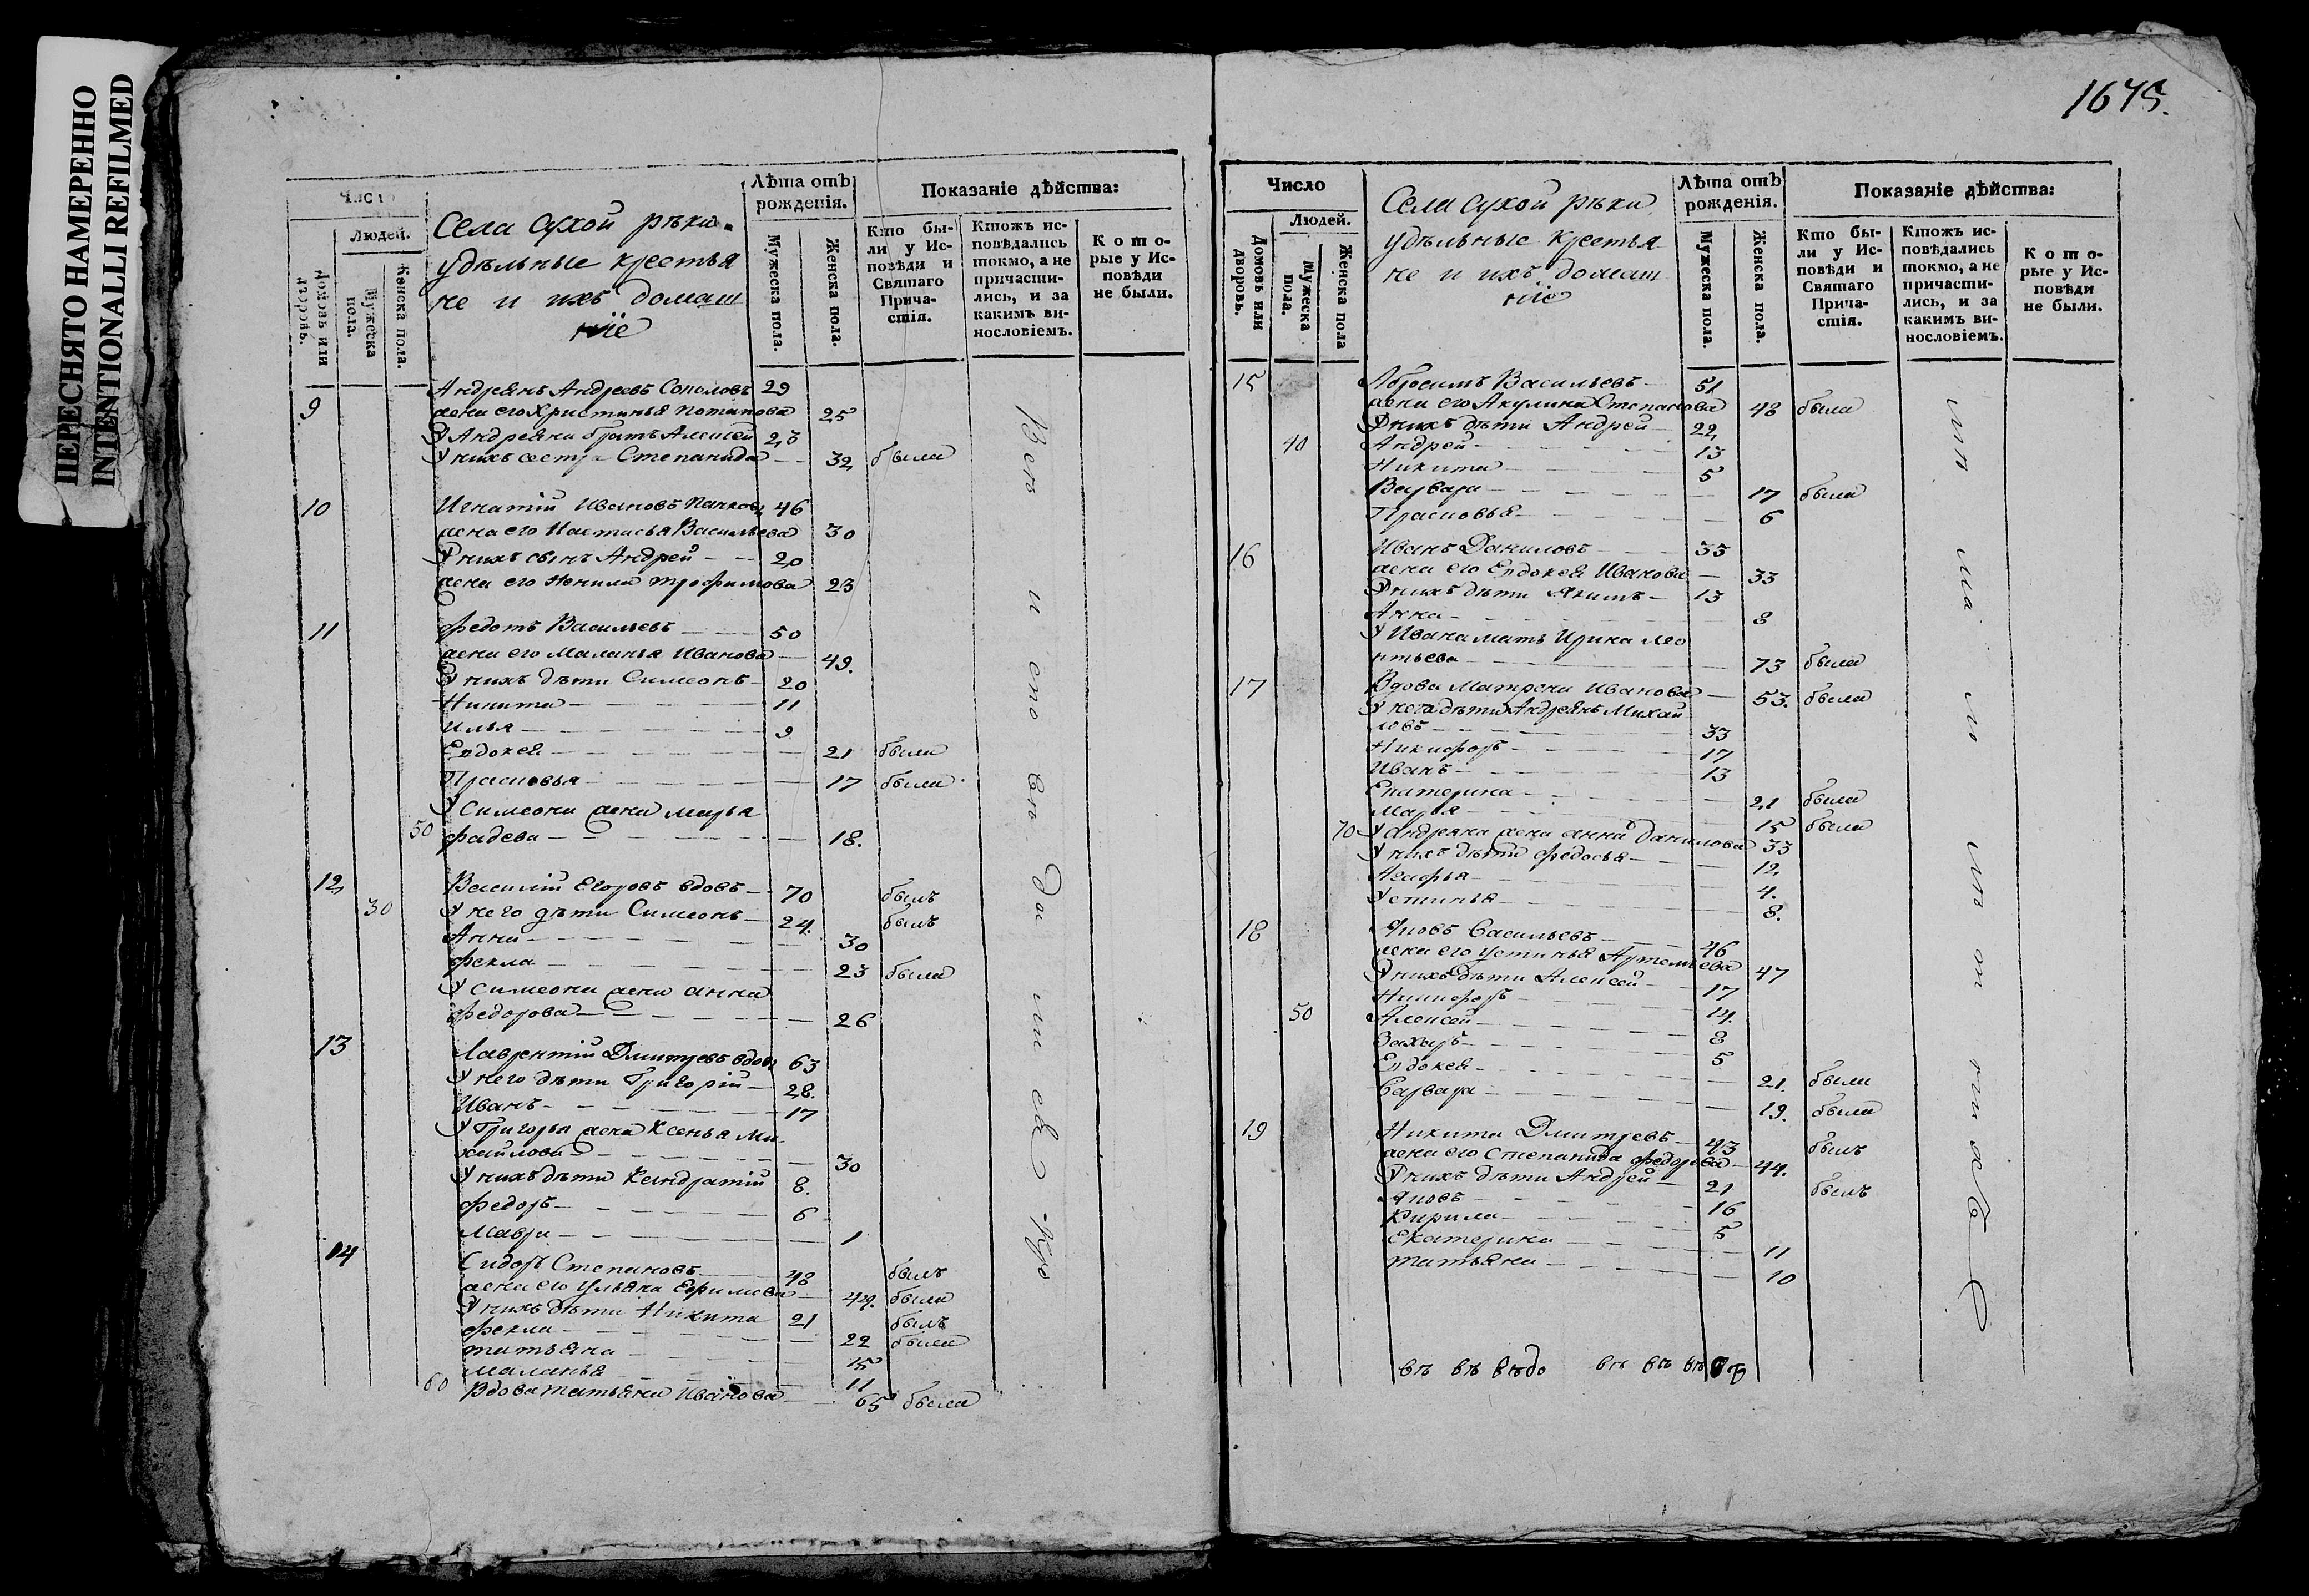 ПЕРЕСНЯТО НАМЕРЕННО
INTENTIONALLI REFILMED
Число
Людей.
Домовъ или дворовъ.
Мужеска пола.
Женска пола.
Села Сухой рѣки
удѣльные крестья
не и ихъ домаш
нïе
Лѣта отъ рожденія.
Мужеска пола.
Женска пола.
Показаніе дѣйства:
Кто бы-
ли у Ис-
повѣди и
Святаго
Прича-
стія.
Ктожъ ис-
повѣдались
токмо, а не
причасти-
лись, и за
какимъ ви-
нословіемъ.
К о т о-
рые у Ис-
повѣди
не были.
Андреянъ Андреевъ 29
9 жена его Христинья Потапова 25
У Андреяна братъ Алексей 23
У нихъ сестра Степанида 32 была
10 Игнатій Ивановъ 46
жена его Настасья Васильева 30
У нихъ сынъ Андрей 20
жена его Ненила Трофимова 23
11 Федотъ Васильевъ 50
жена его Маланья Иванова 49.
У нихъ дѣти Симеонъ 20
Никита 11
Илья 9
Евдокея 21 была
Прасковья 17 была
У Симеона жена Марья
50 Фадеева 18.
12 Василій Егоровъ вдовъ 70 былъ
30 У него дѣти Симеонъ 24. былъ
Анна 30
Фекла 23 была
У Симеона жена Анна
Федорова 26
13 Лаврентій Дмитревъ вдовъ 63
У него дѣти Григорій 28.
Иванъ 17
У Григорья жена Ксенья Ми-
хайлова 30
У нихъ дѣти Кандратій 8.
Федоръ 6
Мавра 1
14 Сидоръ Степановъ 48 былъ
жена его Ульяна Ефимова 44. была
У нихъ дѣти Никита 21 былъ
Фекла 22 была
Татьяна 15
Маланья 11
60 Вдова Татьяна Иванова 65 была
1675.
Число
Людей.
Домовъ или дворовъ.
Мужеска пола.
Женска пола
Села Сухой рѣки
удѣльные крестья
не и ихъ домаш
нïе
Лѣта отъ рожденія.
Мужеска пола.
Женска пола.
Показаніе дѣйства:
Кто бы-
ли у Ис-
повѣди и
Святаго
Прича-
стія.
Ктожъ ис-
повѣдались
токмо, а не
причасти-
лись, и за
какимъ ви-
нословіемъ.
К о т о-
рые у Ис-
повѣди
не были.
15 Абросимъ Васильевъ 51
жена его Акулина Степанова 48 была
У нихъ дѣти Андрей 22
40 Андрей 13
Никита 5
Варвара 17 была
Прасковья 6
16 Иванъ Даниловъ 35
жена его Евдокея Иванова 33
У нихъ дѣти Якимъ 13
Анна 8
У Ивана мать Ирина Лео
нтьева 73 была
17 Вдова Матрена Иванова 53. была
У нея дѣти Андреянъ Михай
ловъ 33
Никифоръ 17
Иванъ 13
Екатерина 21 была
Марья 15 была
70 У Андреяна жена Анна Данилова 33
У нихъ дѣти Федосья 12
Агафья 4.
Устинья 8.
18 Яковъ Васильевъ 46
жена его Устинья Артемьева 47
У нихъ дѣти Алексей 17
Никифоръ 14.
50 Алексей 8
Захаръ 5
Евдокея 21. была
Варвара 19. была
19 Никита Дмитревъ 43 былъ
жена его Степанида Федорова 44.
У нихъ дѣти Андрей 21 былъ
Яковъ 16
Кирила 5
Екатерина 11
Татьяна 10